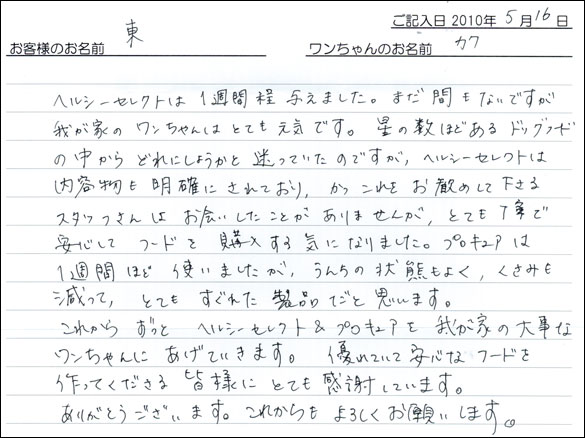 ご記入日 2010年 5月16日
お客様のお名前 東 ワンちゃんのお名前 カク
ヘルシーセレクトは1週間程与えました。まだ間もないですが
我が家のワンちゃんはとても元気です。星の数ほどあるドッグフード
の中からどれにしようかと迷っていたのですが、ヘルシーセレクトは
内容物も明確にされており、かつこれをお勧めして下さる
スタッフさんはお会いしたことがありませんが、とても丁寧で
安心してフードを購入する気になりました。プロキュアは
1週間ほど使いましたが、うんちの状態もよく、くさみも
減って、とてもすぐれた製品だと思います。
これからずっとヘルシーセレクト&プロキュアを我が家の大事な
ワンちゃんにあげていきます。優れていて安心なフードを
作ってくださる皆様にとても感謝しています。
ありがとうございます。これからもよろしくお願いします。